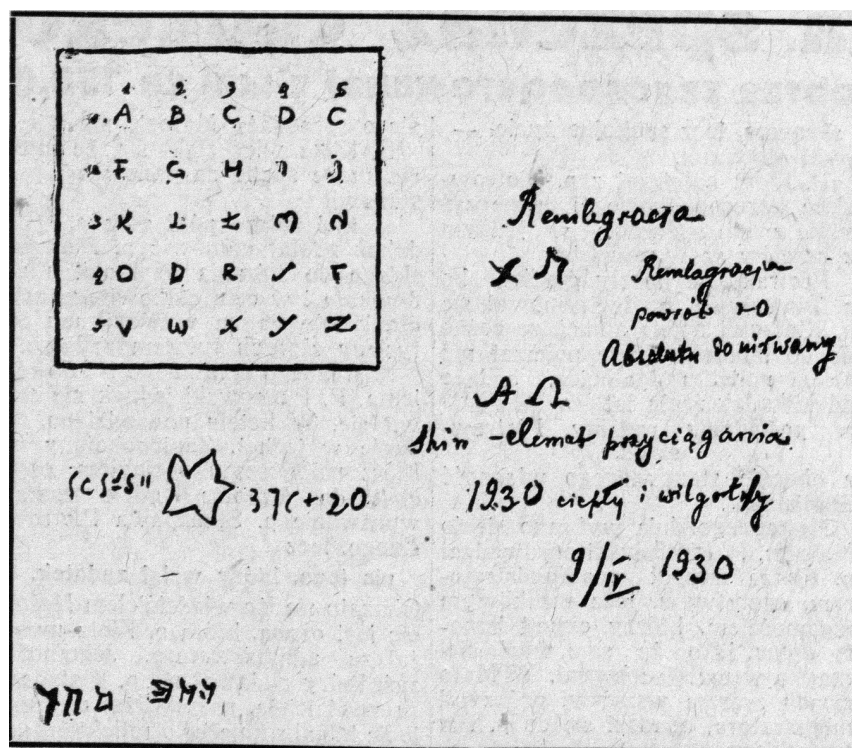 1 2 3 4 5
A B C D C
F G H I J
3 K L Ł M N
4 O P R S T
5 V W X Y Z
Remlagracja
Remlagracja
powrót do
Absolutu do nirwany
A Ω
Shin - elemat przyciągania
1930 ciepły i wilgotny
9/IV 1930